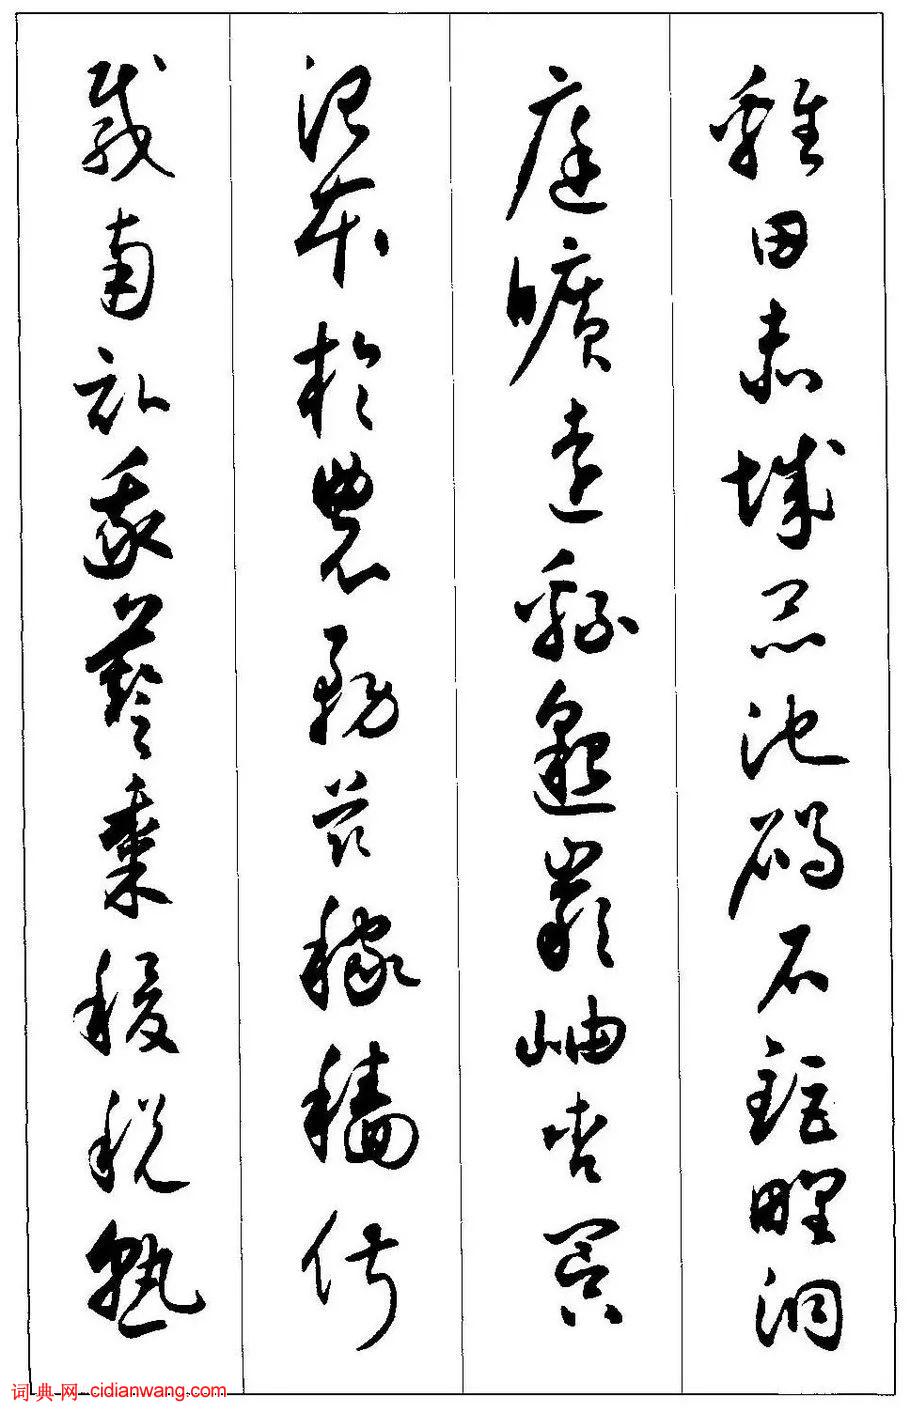 雞田赤城昆池碣石鉅野洞
庭曠遠綿邈巖岫杳冥
治本於農務茲稼穡俶
載南畝我藝黍稷稅熟
词典网-cidianwang.com